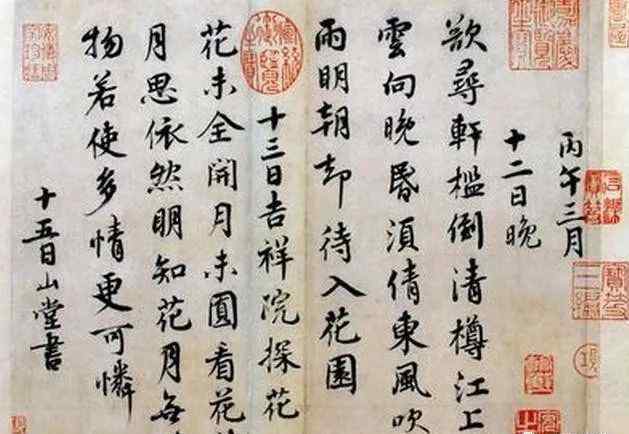 丙午三月
十二日晚
欲尋軒檻倒清樽江上
雲向晚昏須倩東風吹
雨明朝却待入花園
十三日吉祥院探花
花未全開月未圓看花
月思依然明知花月無
物若使多情更可憐
十五日山堂書